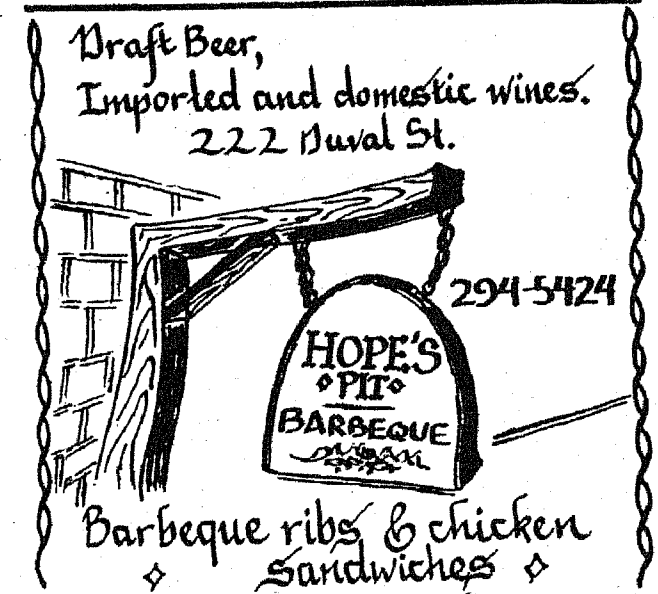 Draft Beer,
Imported and domestic wines.
222 Duval St.
294-5424
HOPE'S
PIT
BARBEQUE
Barbeque ribs & chicken
sandwiches